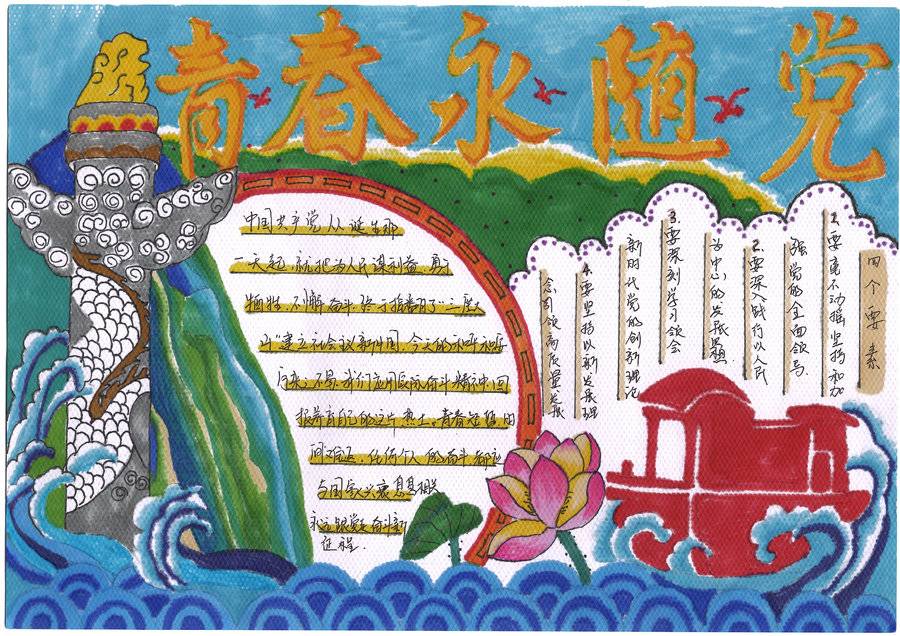 青春永随党
中国共产党从诞生那
一天起,就把为人民谋利益
牺牲,不懈奋斗,终于推翻了“三座大
山”建立社会议新中国,今天的和平
历来,不易,我们应用
报养育自己的这片热土。青春
同,任何个人的奋斗都
与国家兴衰息息相关
永远跟党奋斗新
征程.
四个要素
1.要毫不动摇坚持和加
强党的全面领导
2.要深入践行以人民
为中心的发展思想.
3.要深刻学习领会
新时代党的创新理论
4.要坚持以新发展理
念引领高质量发展